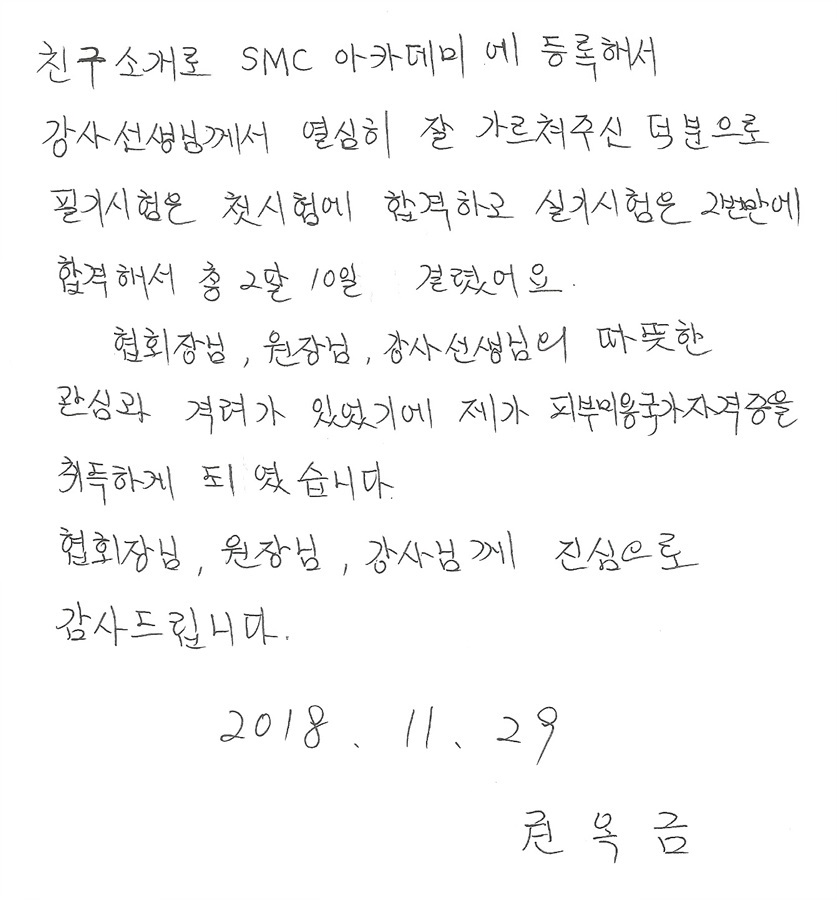 친구소개로 SMC 아카데미 에 등록해서
강사선생님께서 열심히 잘 가르쳐주신 덕분으로
필기시험은 첫시험에 합격하고 실기시험은 2번만에
합격해서 총 2달 10일 결렸어요.
협회장님, 원장님, 강사선생님의 따뜻한
관심과 격려가 있었기에 제가 피부미용국가자격증을
취득하게 되였습니다.
협회장님, 원장님, 강사님께 진심으로
감사드립니다.
2018. 11. 29
권옥금